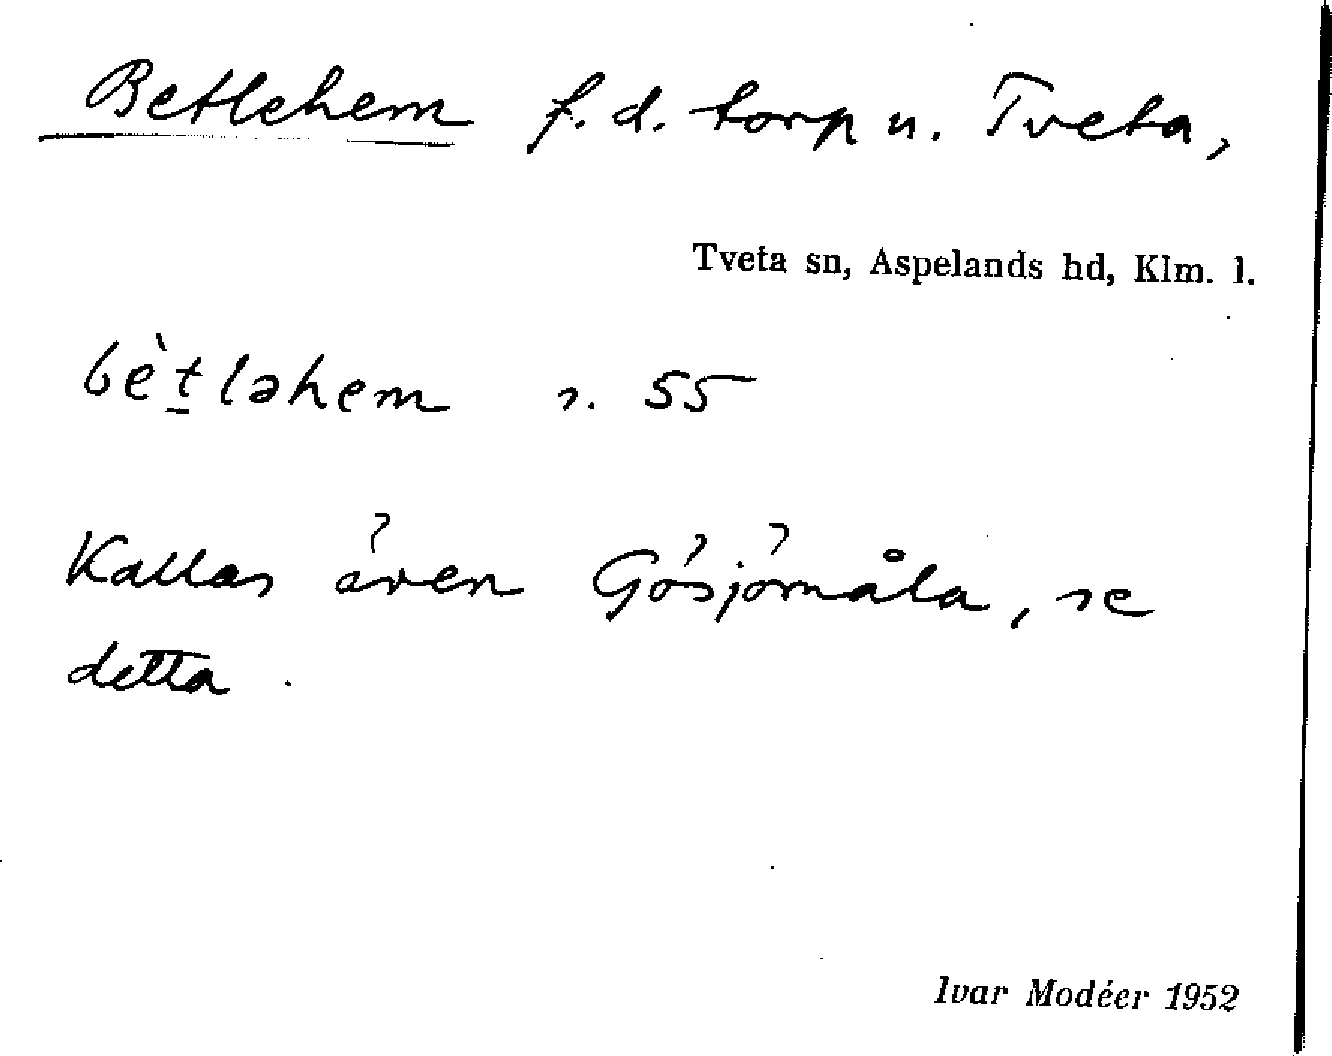 Betlehem f.d. torp u. Tveta,
Tveta sn, Aspelands hd, Klm. l.
bèt̲ləhem s. 55
Kallas även Gösjömåla, se
detta.
Ivar Modéer 1952